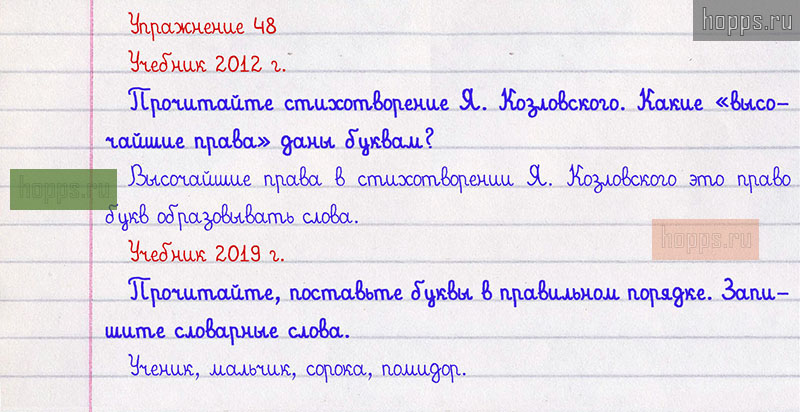 hopps.ru
Упражнение 48
Учебник 2012 г.
Прочитайте стихотворение Я. Козловского. Какие «высо-
чайшие права» даны буквам?
Высочайшие права в стихотворении Я. Козловского это право
букв образовывать слова.
hopps.ru
Учебник 2019 г.
hopps.ru
Прочитайте, поставьте буквы в правильном порядке. Запи-
шите словарные слова.
Ученик, мальчик, сорока, помидор.